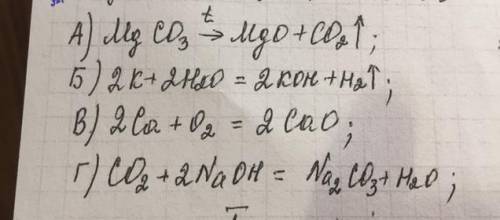 А) MgCO₃ →ᵗ MgO + CO₂↑;
Б) 2K + 2H₂O = 2KOH + H₂↑;
В) 2Ca + O₂ = 2CaO;
Г) CO₂ + 2NaOH = Na₂CO₃ + H₂O;